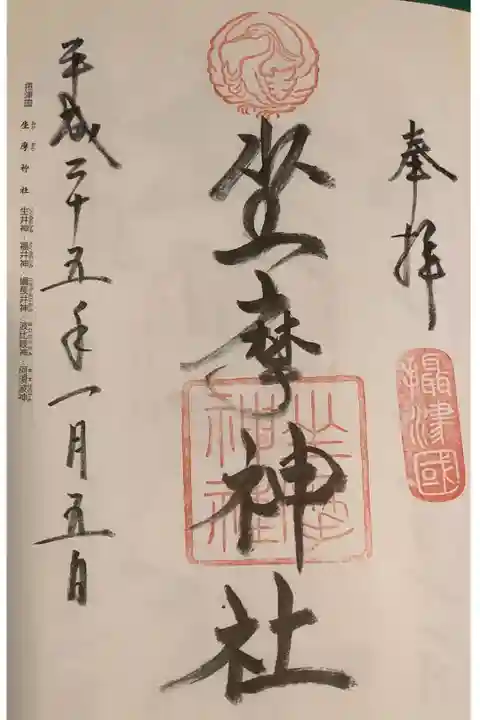 奉拝
攝津國
坐摩神社
平成二十五年一月五日
摂津國 坐摩神社 生井神・福井神・綱長井神・波比祇神・阿須波神